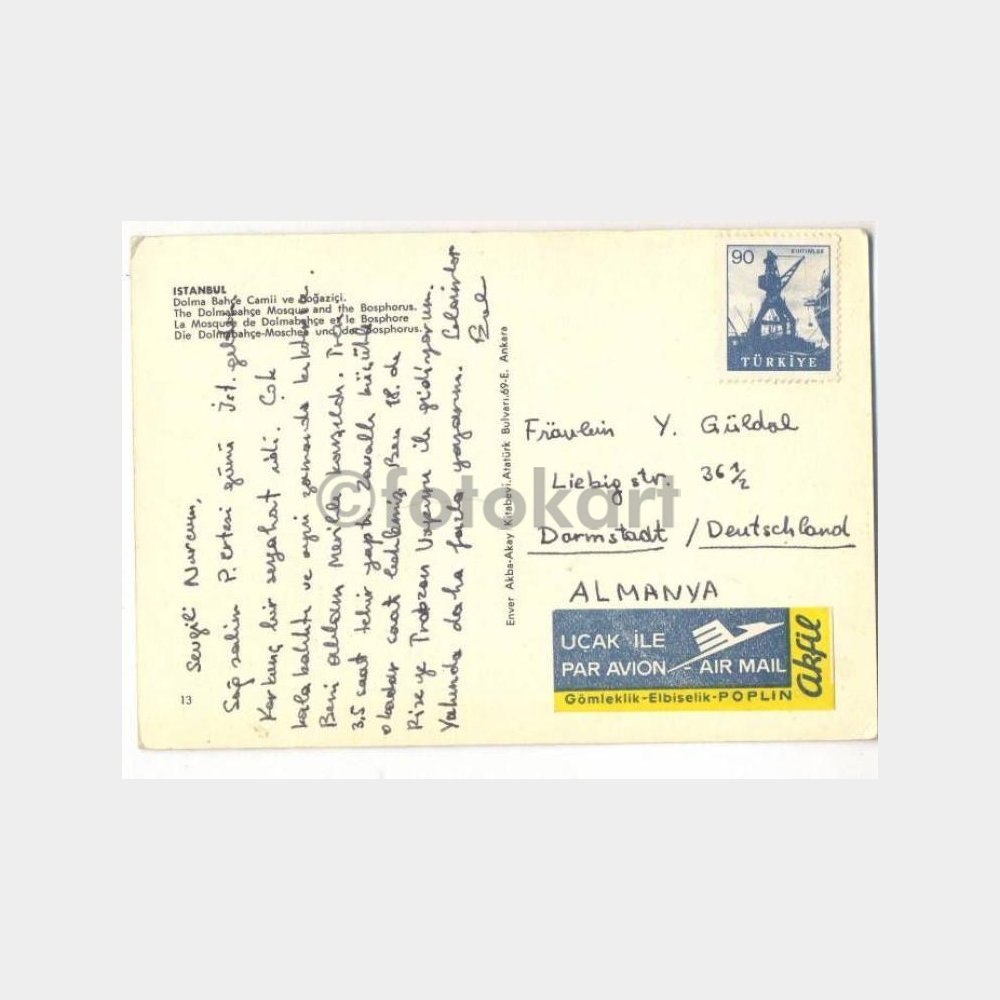 ISTANBUL
Dolma Bahçe Camii ve Boğaziçi.
The Dolmabahçe Mosque and the Bosphorus.
La Mosquée de Dolmabahçe et le Bosphore
Die Dolmabahçe-Moschee und der Bosphorus.
Sevgili Nurcum,
Sağ salim P.ertesi günü İst. geldim.
Korkunç bir seyahat idi. Çok
kalabalıktı ve aynı zamanda
Beni ablam Merihle karşıladı. Tren
3.5 saat tehir yaptı. Zavallı küçükle
o kadar saat beklemiş. Ben 18. de
Rizeye Trabzon Vapuru ile gidiyorum.
Yakında daha fazla yazarım. Selamlar
13
Enver Akba-Akay Kitabevi.Atatürk Bulvarı.69-E. Ankara
90
TÜRKİYE
Fräulein Y. Güldal
Liebigstr. 36 1/2
Darmstadt / Deutschland
ALMANYA
UÇAK İLE
PAR AVION - AIR MAIL
Gömleklik-Elbiselik-POPLİN
akfil
©fotokart